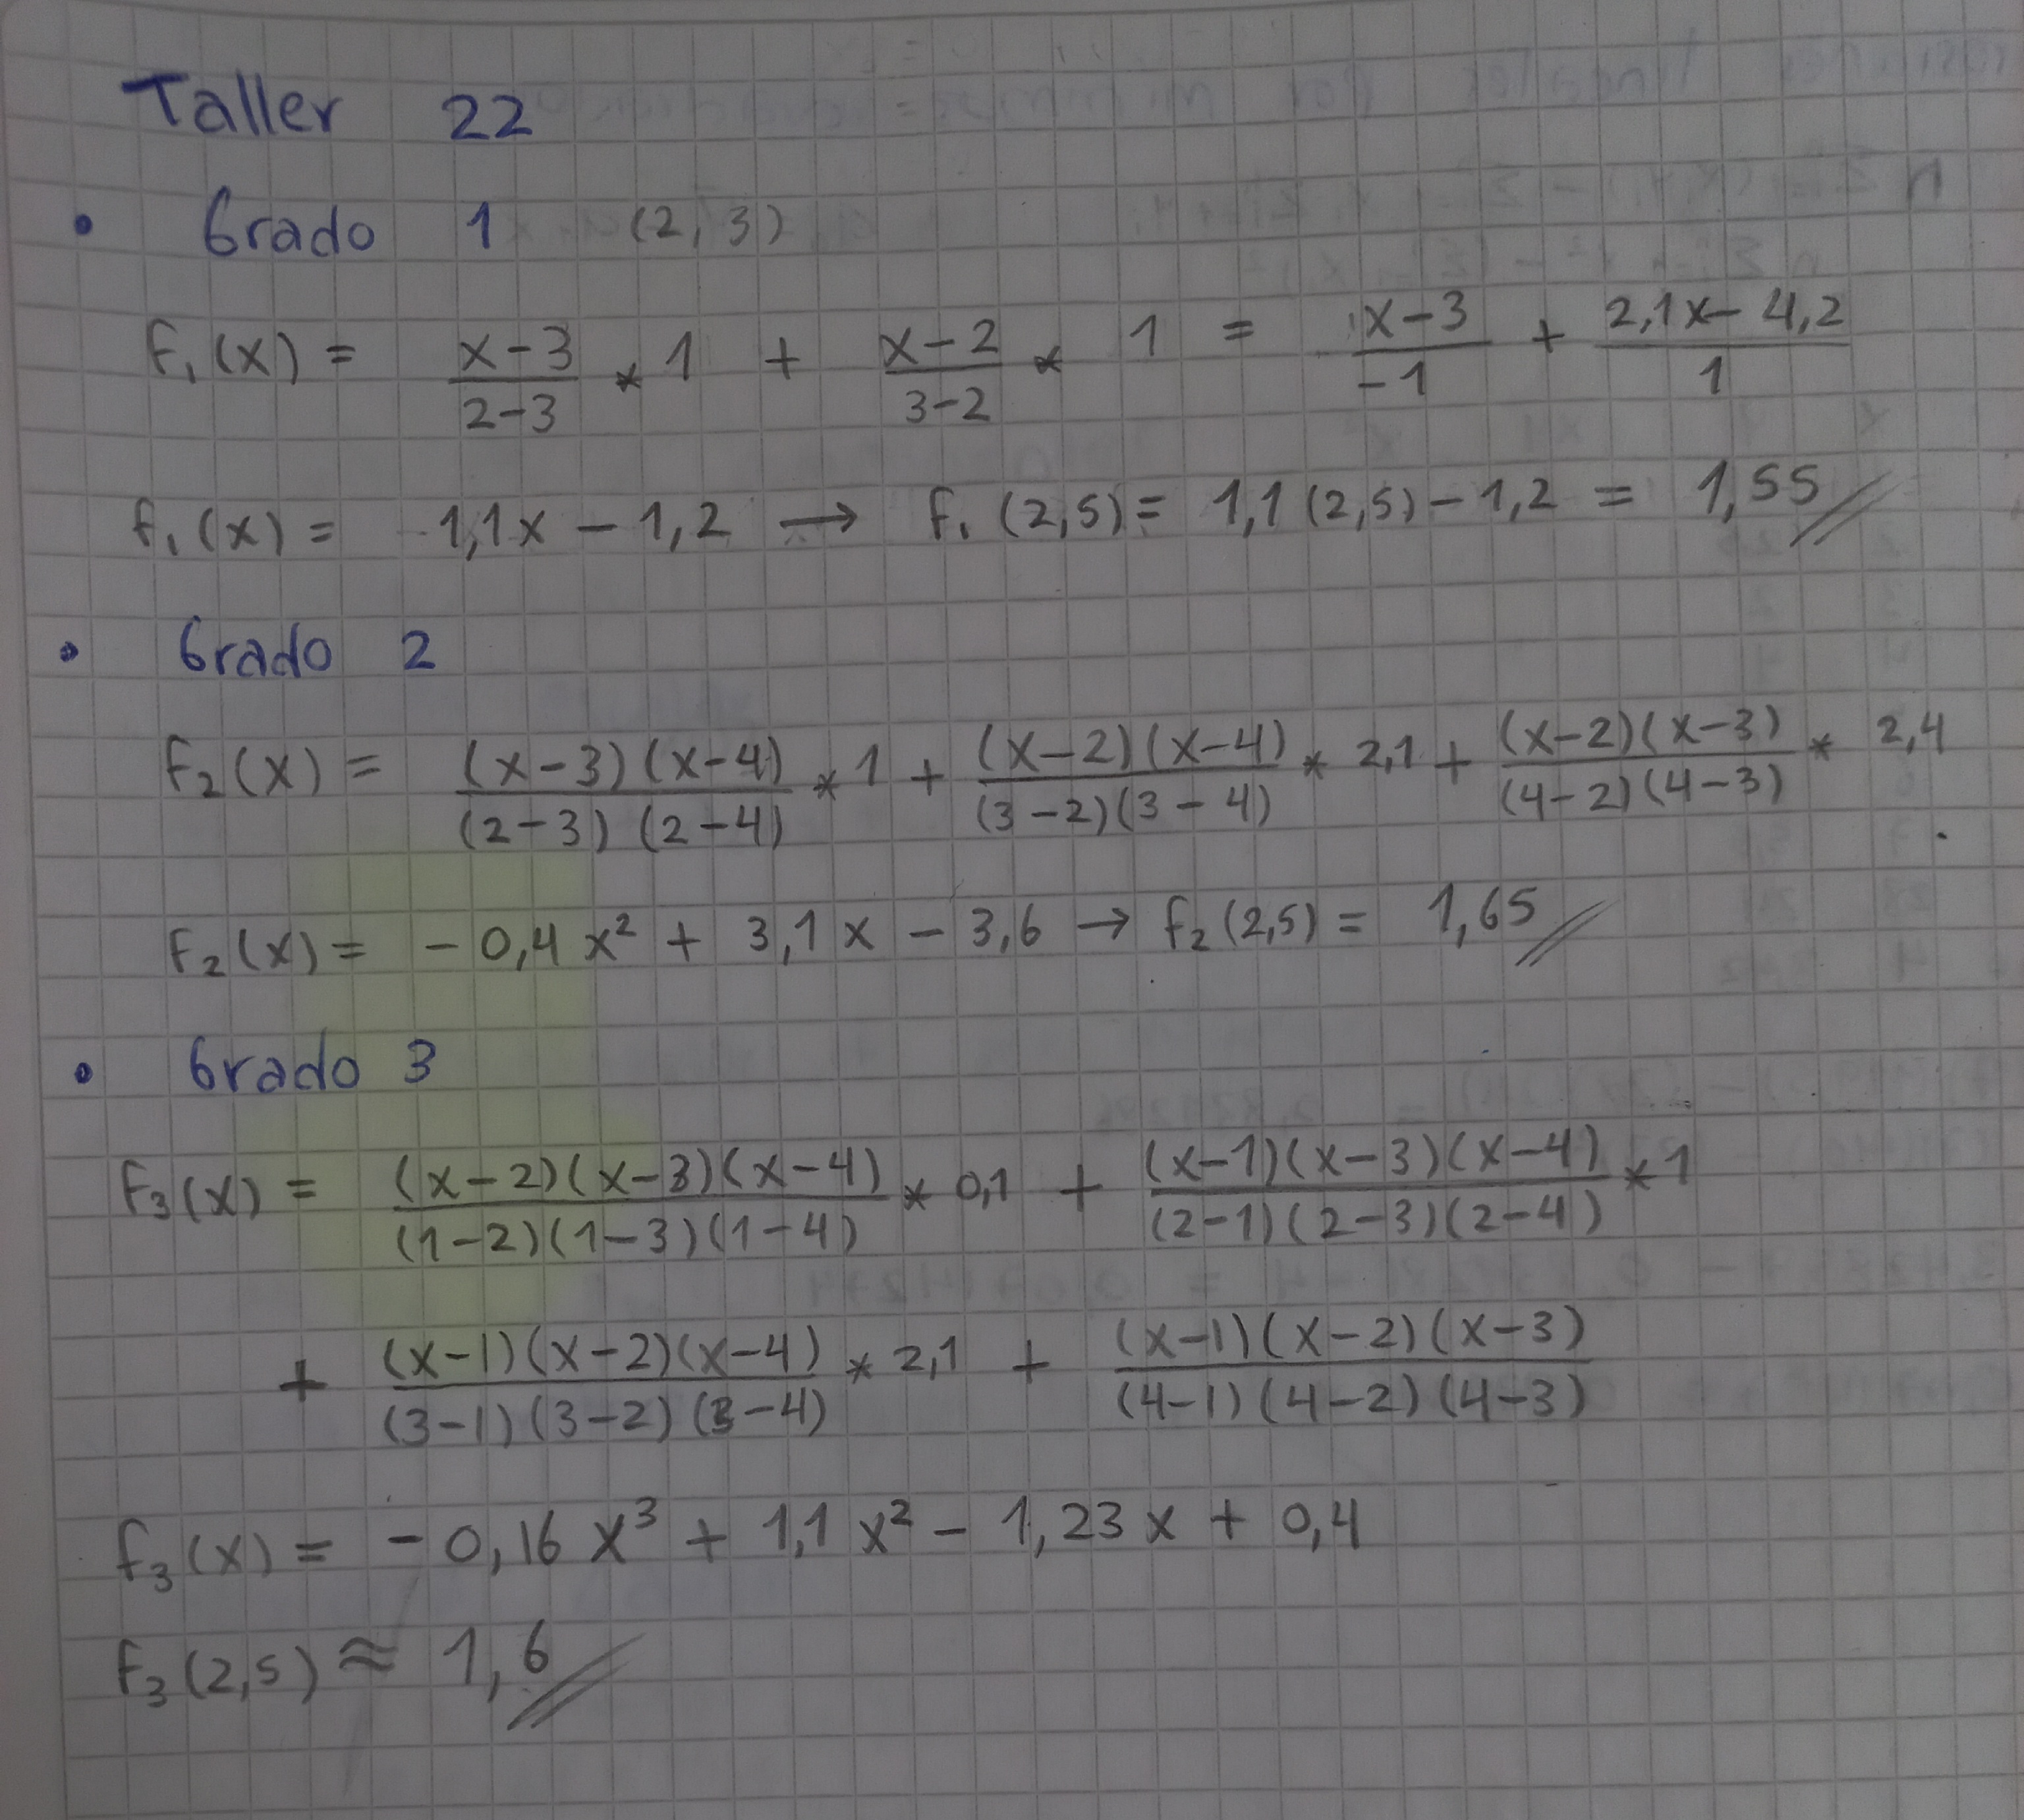 Taller 22
• Grado 1 (2,3)
f₁(x) = (x-3)/(2-3) * 1 + (x-2)/(3-2) * 1 = (x-3)/(-1) + (2,1x-4,2)/1
f₁(x) = 1,1x - 1,2 → f₁(2,5) = 1,1(2,5) - 1,2 = 1,55
• Grado 2
f₂(x) = (x-3)(x-4)/(2-3)(2-4) * 1 + (x-2)(x-4)/(3-2)(3-4) * 2,1 + (x-2)(x-3)/(4-2)(4-3) * 2,4
f₂(x) = -0,4x² + 3,1x - 3,6 → f₂(2,5) = 1,65
• Grado 3
f₃(x) = (x-2)(x-3)(x-4)/(1-2)(1-3)(1-4) * 0,1 + (x-1)(x-3)(x-4)/(2-1)(2-3)(2-4) * 1
+ (x-1)(x-2)(x-4)/(3-1)(3-2)(3-4) * 2,1 + (x-1)(x-2)(x-3)/(4-1)(4-2)(4-3)
f₃(x) = -0,16x³ + 1,1x² - 1,23x + 0,4
f₃(2,5) ≈ 1,6